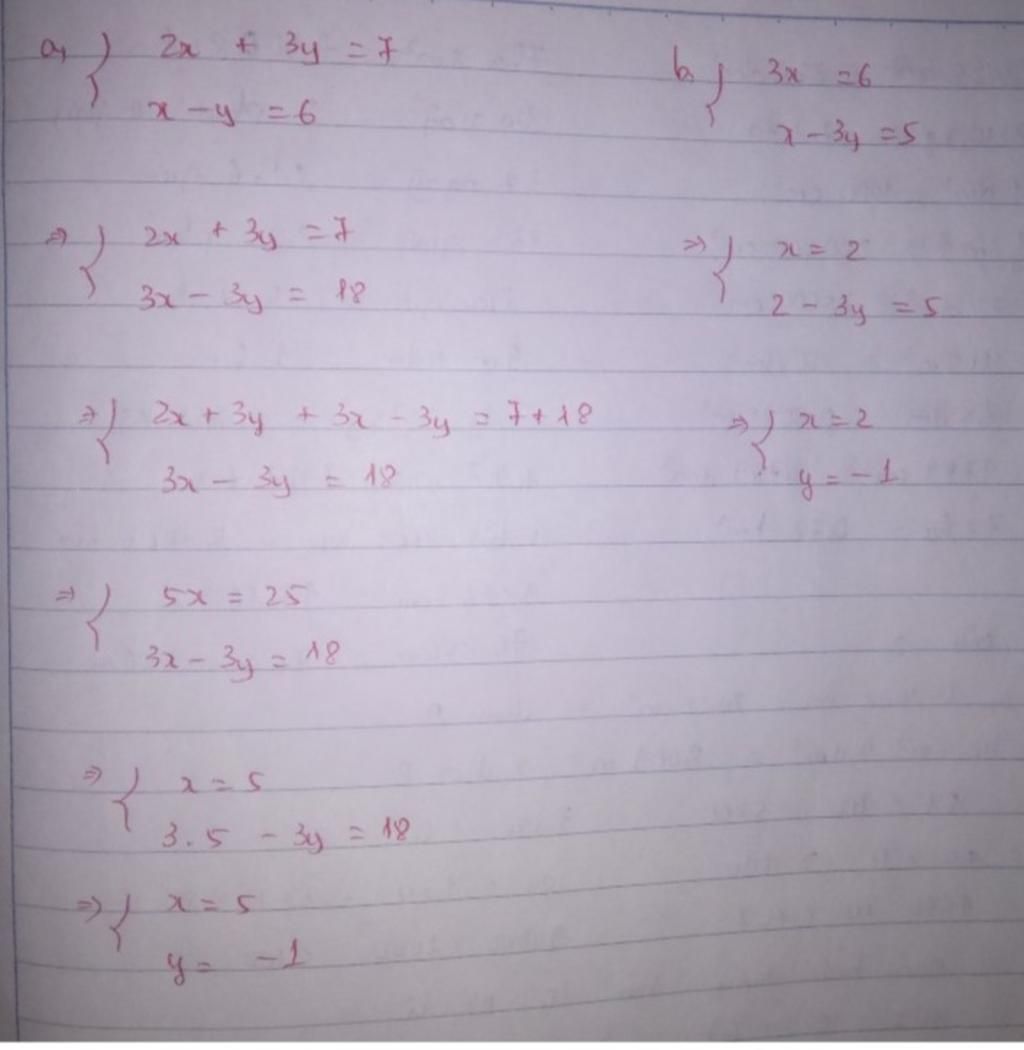 a, { 2x + 3y = 7
x - y = 6
⇒ { 2x + 3y = 7
3x - 3y = 18
⇒ { 2x + 3y + 3x - 3y = 7 + 18
3x - 3y = 18
⇒ { 5x = 25
3x - 3y = 18
⇒ { x = 5
3. 5 - 3y = 18
⇒ { x = 5
y = -1
b, { 3x = 6
x - 3y = 5
⇒ { x = 2
2 - 3y = 5
⇒ { x = 2
y = -1